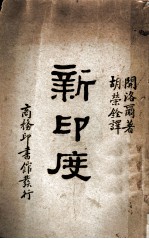 開洛爾著
胡榮銓譯
新印度
商務印書館發行